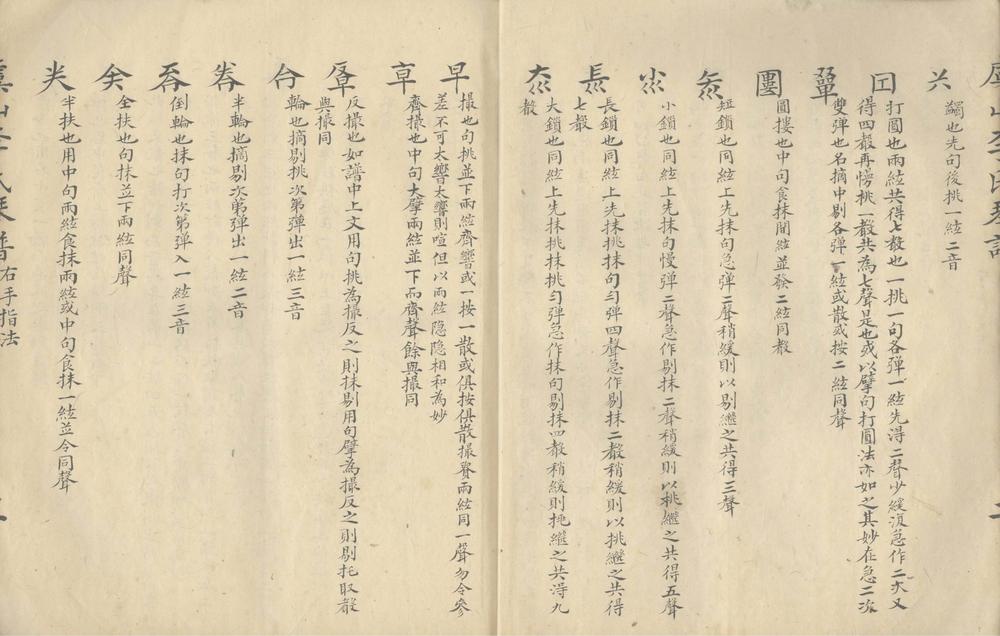 蠲也先勾後挑一絃二音
囗 打圓也兩絃共得七聲也一挑一句各弹一絃先淂二聲少緩復急作二次又
得四聲再慢挑一聲共為七聲是也或以擘句打圓法亦如之其妙在急二次
雙弹也名摘中剔各弹一絃或散或按二絃同聲
圖摟也中句食抹間絃並發二絃同聲
短鎖也同絃上先抹句急弹二聲稍緩則以剔繼之共得三聲
小鎖也同絃上先抹句慢弹二聲急作剔抹二聲稍緩則以挑繼之共得五聲
長鎖也同絃上先抹挑抹句勻弹四聲急作剔抹二聲稍緩則以挑繼之共得
七聲
大鎖也同絃上先抹挑抹挑勻弹急作抹句剔抹四聲稍緩則挑繼之共淂九
聲
早 撮也句挑並下兩絃齊響或一按一散或俱按俱散撮賽兩絃同一聲勿令參
差不可太響太響則喧但以兩絃隐隐相和為妙
齊撮也中句大擘兩絃並下而齊聲餘與撮同
反撮也如譜中上文用句挑為撮反之則抹剔用句擘為撮反之則剔托取聲
與撮同
輪也摘剔挑次第弹出一絃三音
半輪也摘剔次第弹出一絃二音
倒輪也抹句打次第弹入一絃三音
全扶也句抹並下兩絃同聲
半扶也用中句兩絃食抹兩絃或中句食抹一絃並令同聲
右手指法